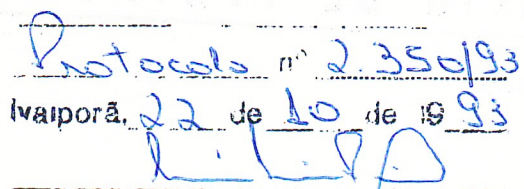 Protocolo nº 2.350/93
Ivaiporã, 22 de 10 de 1993